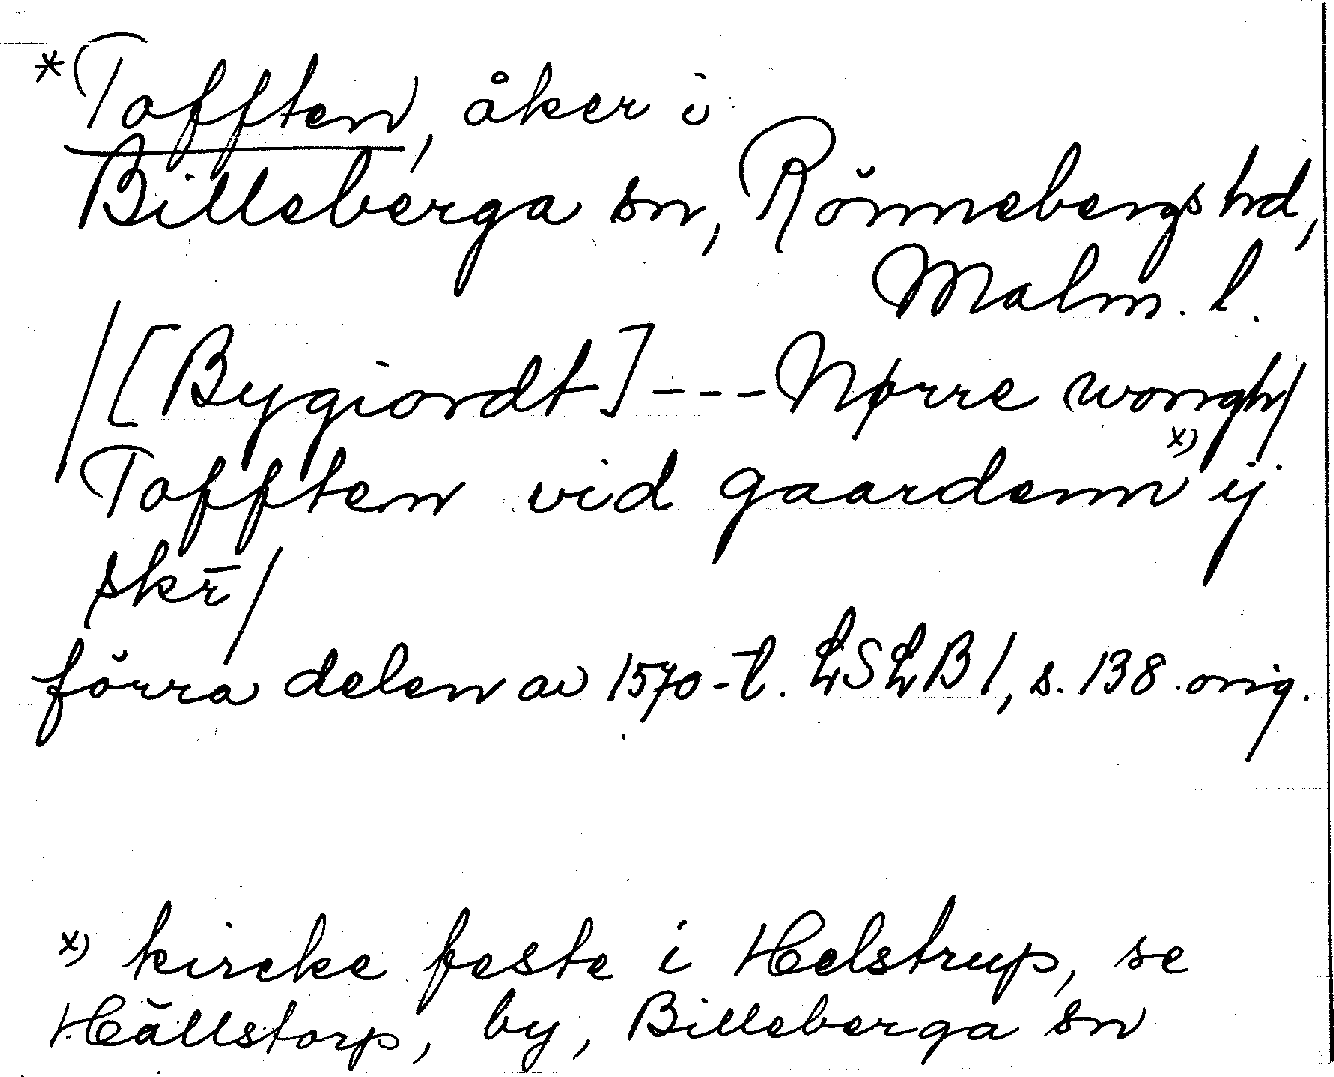 *Tofften, åker i
Billeberga sn, Rönnebergs hd,
Malm. l.
/[Bygiordt]---Nørre wongh/
Tofften vid gaardenn x) ij
skr̄/
förra delen av 1570-t. LSLB 1, s. 138 orig.
x) kircke feste i Helstrup, se
Hällstorp, by, Billeberga sn